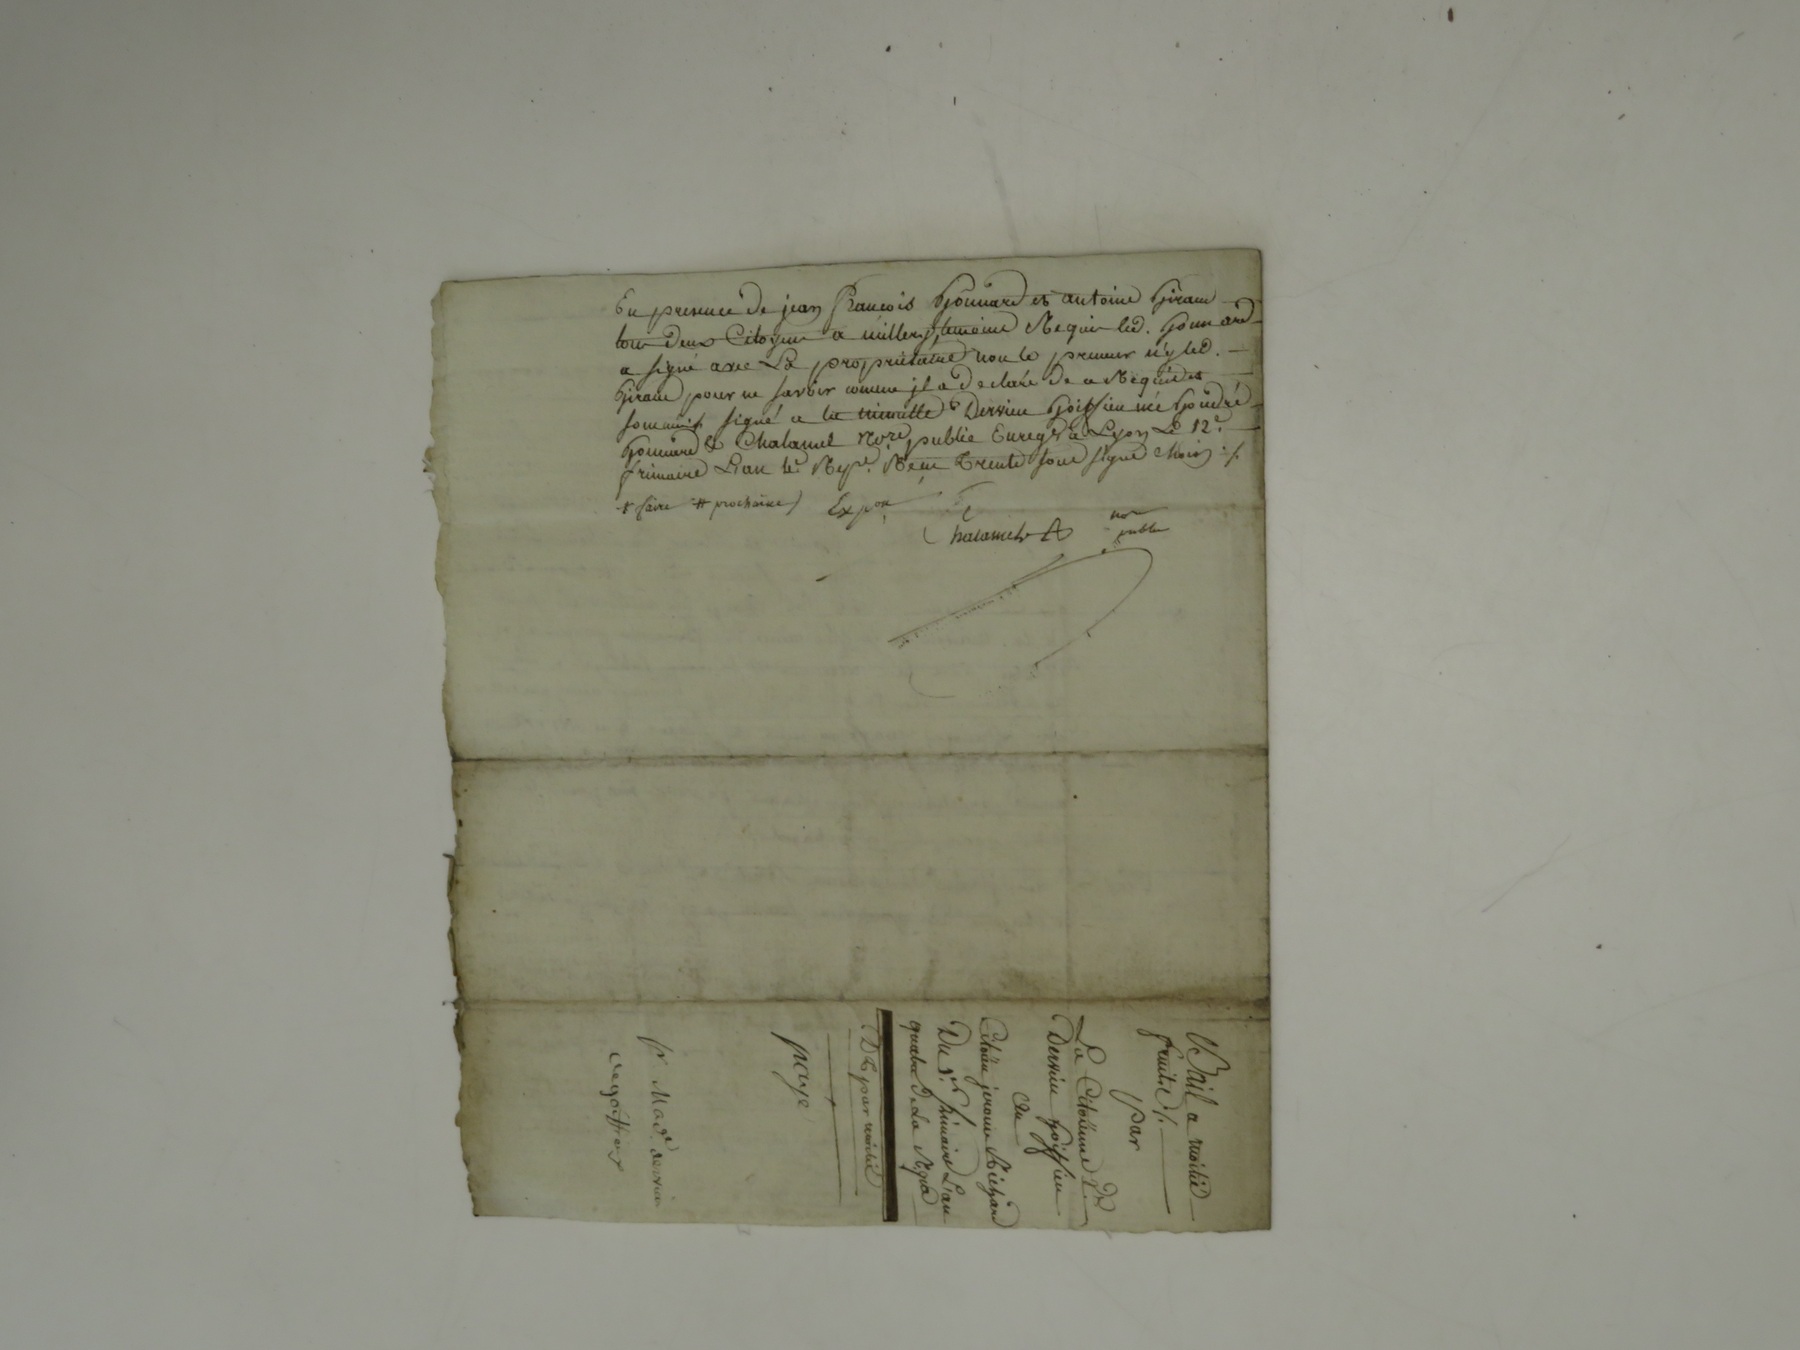 En presence de jean Francois Gonnard et antoine Giraud
tous deux Citoyens a millery temoins Requis led. Gonnard
a signé avec La propriétaire non le preneur n'y led.
Giraud pour ne savoir comme jl a declaré de ce Requis et
sommés signé a la minutte Ve Dervieu Goiffieu née
Gonnard & Chalamel nore public Enregré a Lyon Le 12e
frimaire L'an 4e Repe. Recu trente sous signé
+ faire # prochaine Expon
Chalamel nore
public
Bail a moitié
fruits /.
par
La Citoïenne Ve
Dervieu Goiffieu
Au
Citoïen jerome Richard
Du frimaire L'an
quatre De La Repe
De par moitié
payé
pr Made dervieu